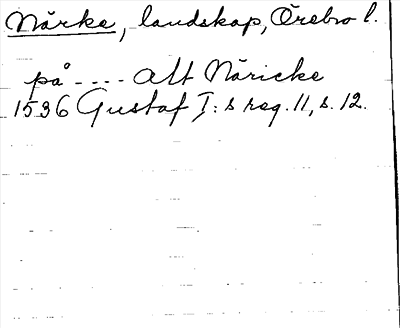 Närke, landskap, Örebro l.
på .... alt Näricke
1536 Gustaf I:s reg. 11, s. 12.